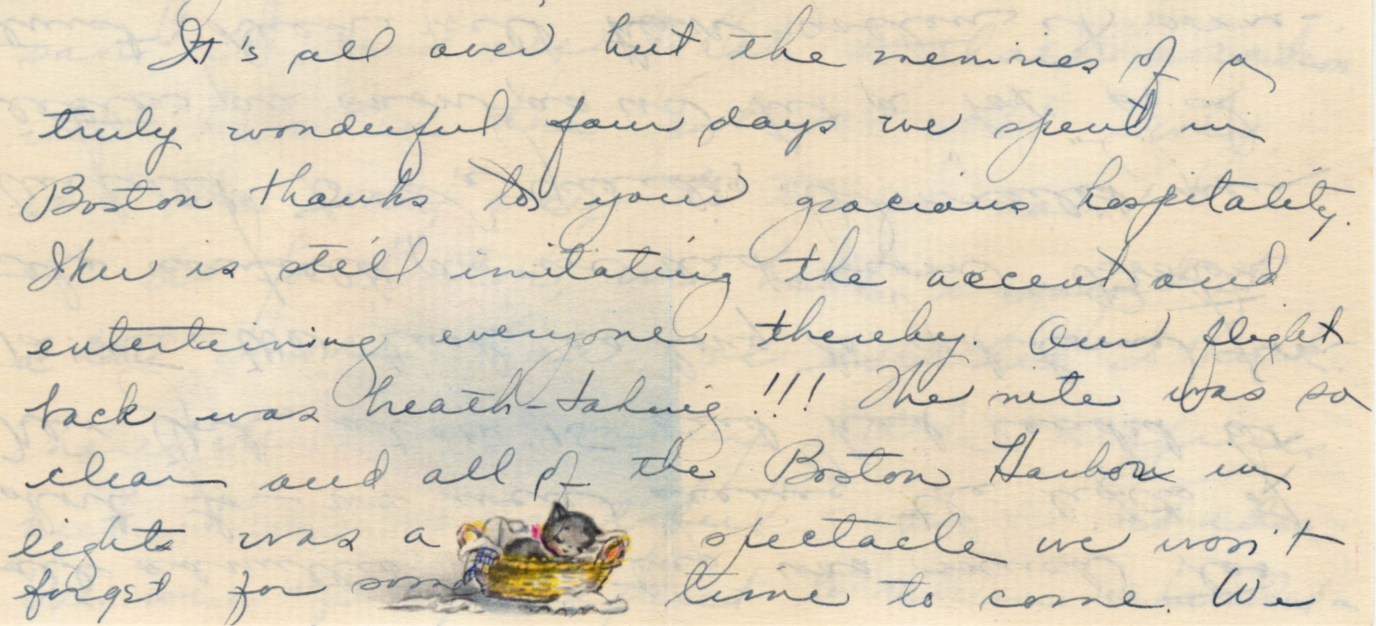 It's all over but the memories of a
truly wonderful four days we spent in
Boston thanks to your gracious hospitality.
is still imitating the accent and
entertaining everyone thereby. Our flight
back was breath-taking!!! The nite was so
clear and all of the Boston Harbor in
lights was a spectacle we won't
forget for some time to come. We